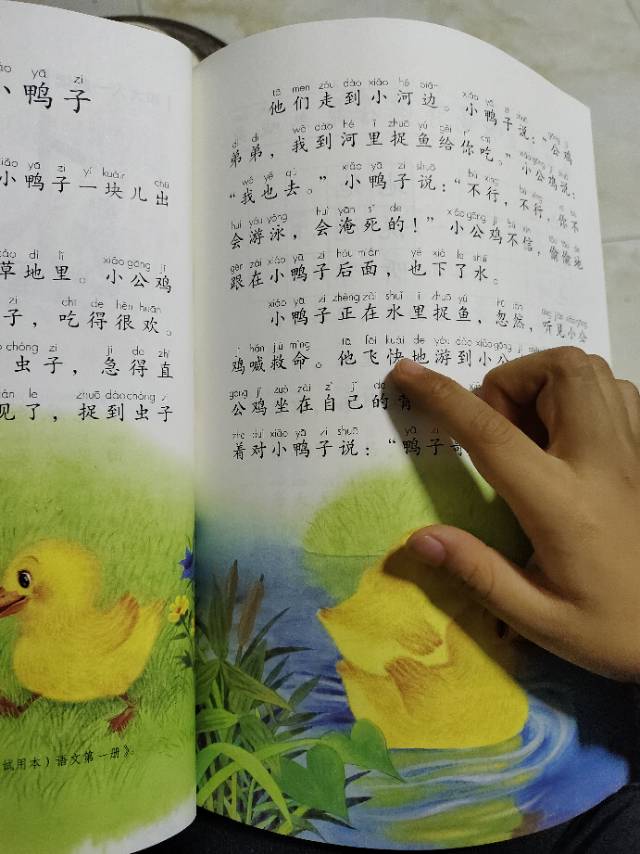 yā zi
小鸭子
xiǎo yā zi yí kuàir chū
小鸭子一块儿出
cǎo dì li xiǎo gōng jī
草地里。小公鸡
zi chī de hěn huān
子,吃得很欢。
chóng zi jí de zhí
虫子,急得直
jiàn le zhuō dào chóng zi
见了,捉到虫子
(试用本)语文第一册》
tā men zǒu dào xiǎo hé biān xiǎo yā zi shuō gōng jī
他们走到小河边。小鸭子说:“公鸡
dì di wǒ dào hé li zhuō yú gěi nǐ chī xiǎo gōng jī shuō
弟弟,我到河里捉鱼给你吃。”小公鸡说:
wǒ yě qù xiǎo yā zi shuō bù xíng bù xíng nǐ bú
“我也去。”小鸭子说:“不行,不行,你不
huì yóu yǒng huì yān sǐ de xiǎo gōng jī bú xìn tōu tōu de
会游泳,会淹死的!”小公鸡不信,偷偷地
gēn zài xiǎo yā zi hòu miàn yě xià le shuǐ
跟在小鸭子后面,也下了水。
xiǎo yā zi zhèng zài shuǐ li zhuō yú hū rán tīng jiàn xiǎo gōng
小鸭子正在水里捉鱼,忽然,听见小公
jī hǎn jiù mìng tā fēi kuài de yóu dào xiǎo gōng jī
鸡喊救命。他飞快地游到小公
gōng jī zuò zài zì jǐ de
公鸡坐在自己的背
zhe duì xiǎo yā zi shuō yā zi
着对小鸭子说:“鸭子哥